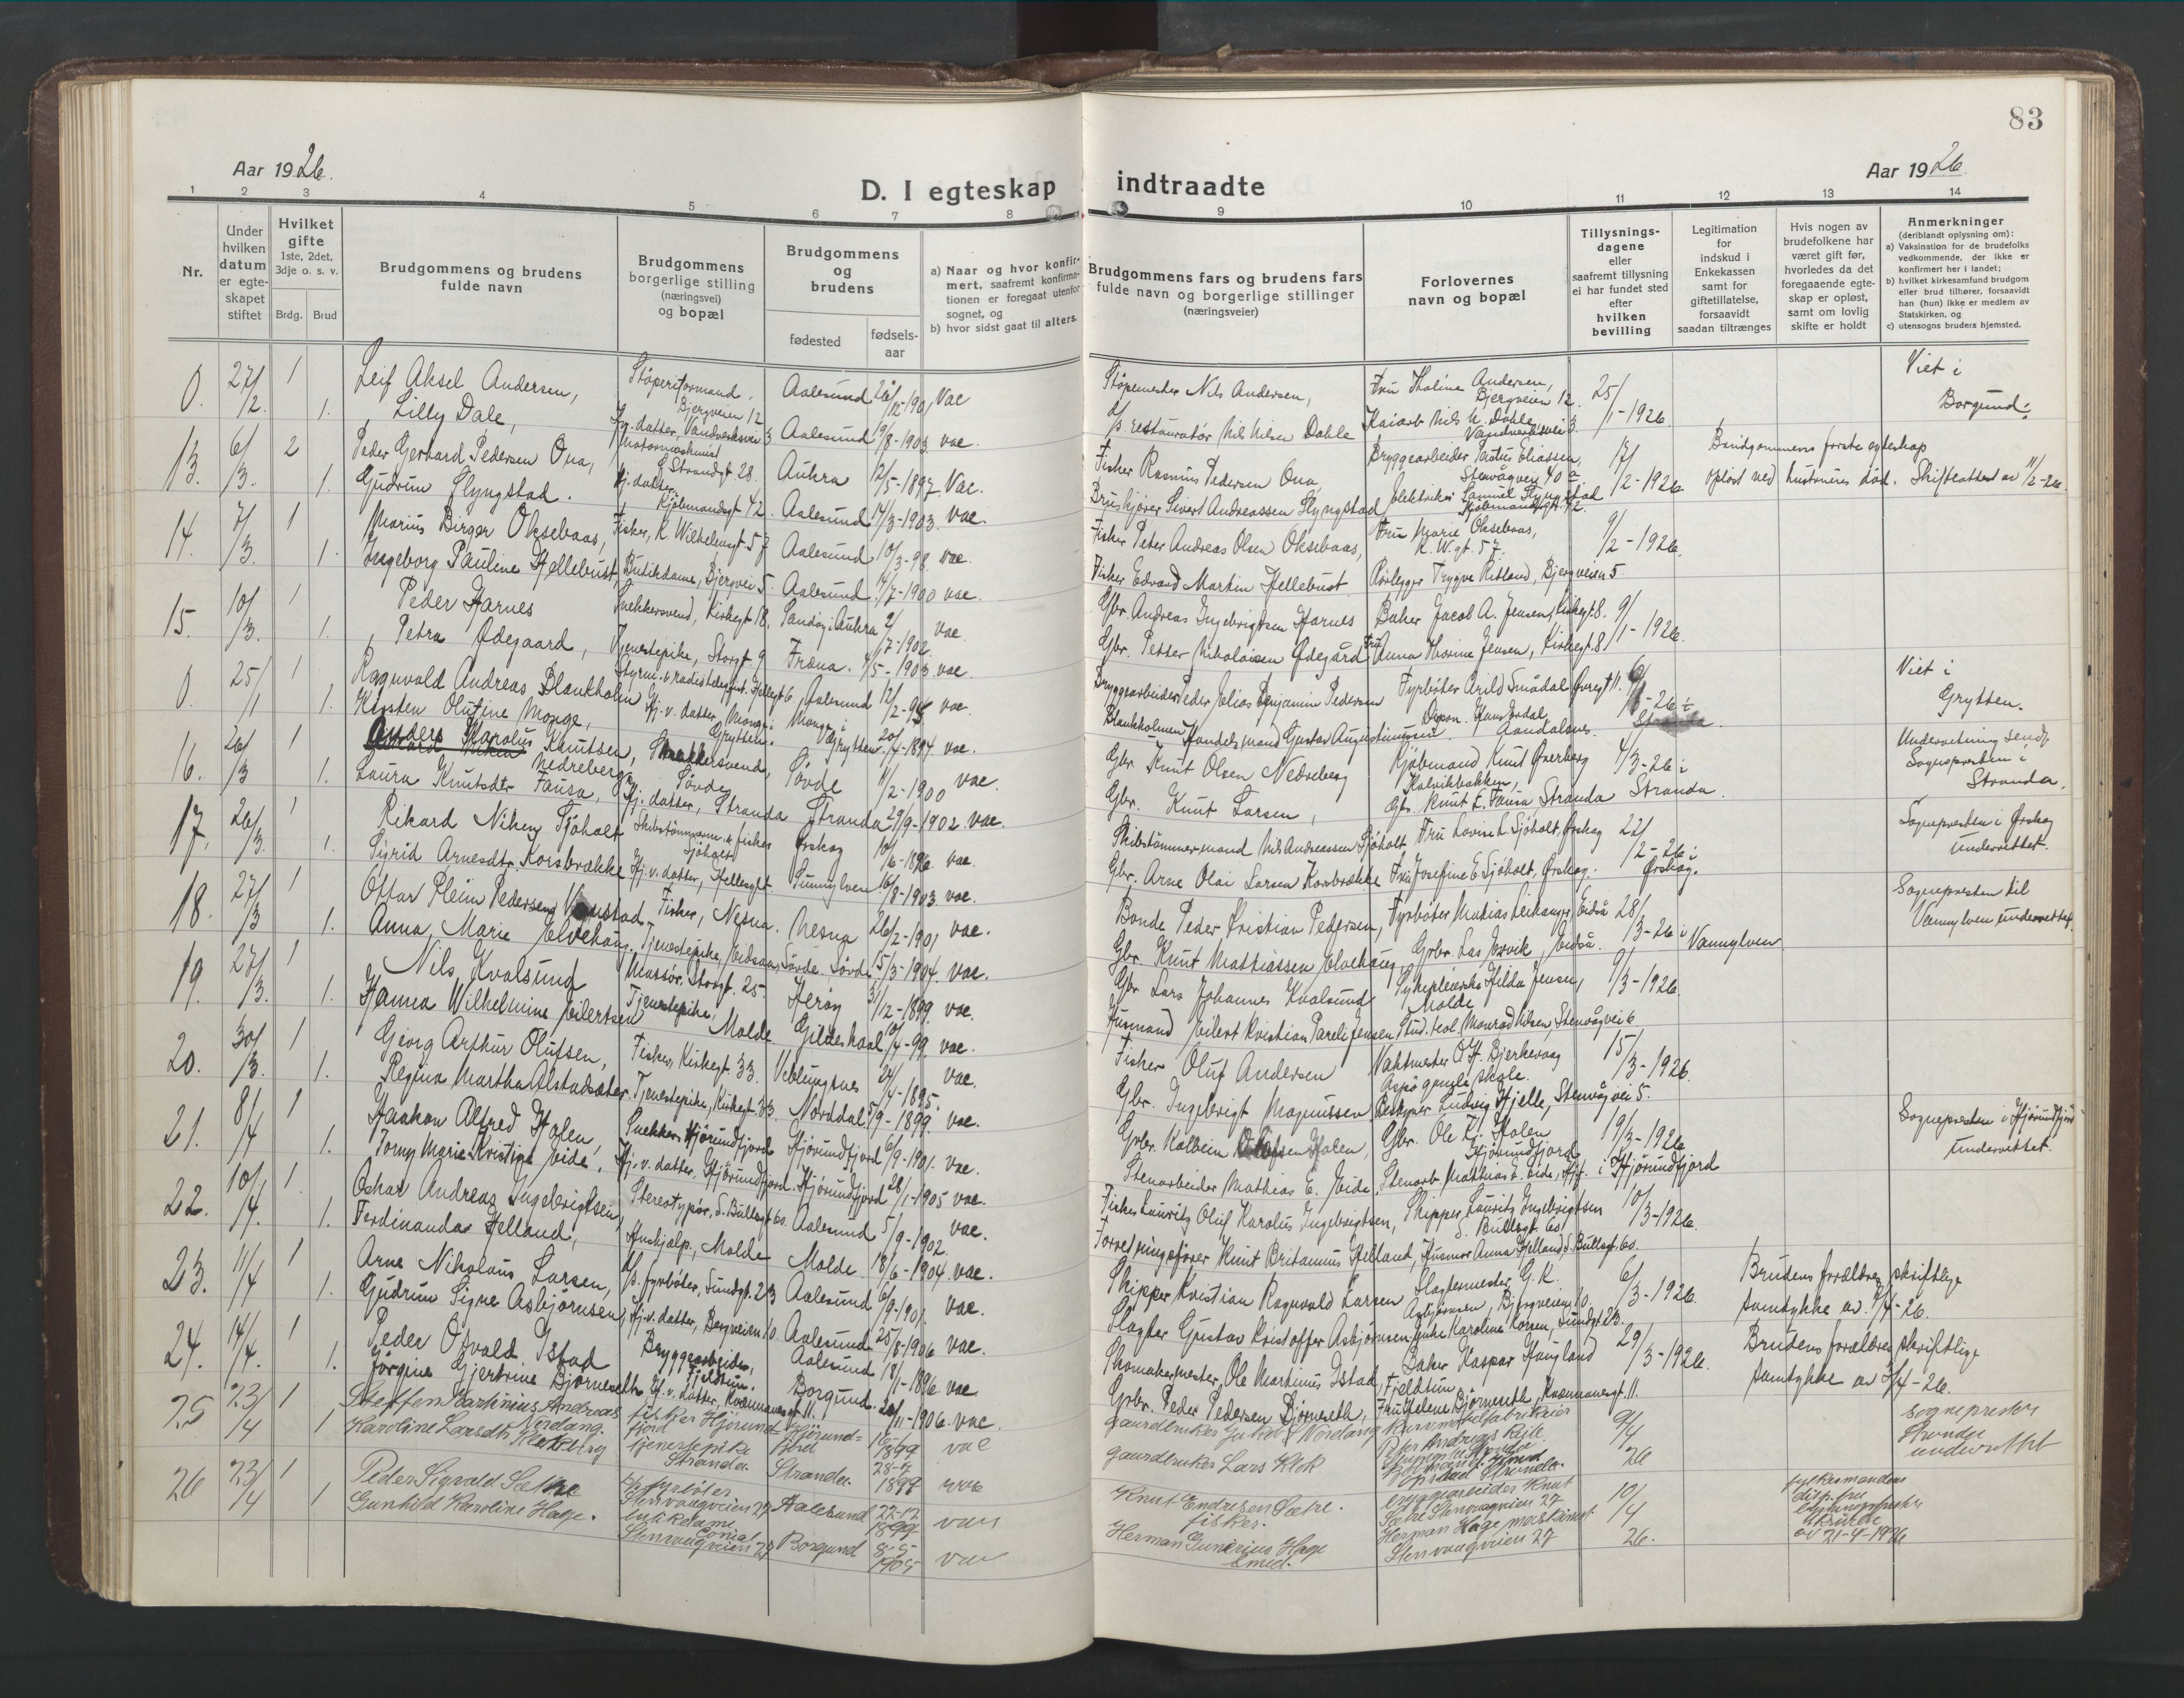 83
Aar 1926.
Aar 1926
D. I egteskap indtraadte
1 2 3 4 5 6 7 8 9 10 11 12 13 14
Nr.
Under hvilken datum er egte-skapet stiftet
Hvilket gifte 1ste, 2det, 3dje o. s. v.
Brdg. Brud
Brudgommens og brudens fulde navn
Brudgommens borgerlige stilling (næringsvei) og bopæl
Brudgommens og brudens
fødested
fødsels-aar
a) Naar og hvor konfir-mert, saafremt konfirma-tionen er foregaat utenfor sognet, og
b) hvor sidst gaat til alters.
Brudgommens fars og brudens fars fulde navn og borgerlige stillinger (næringsveier)
Forlovernes navn og bopæl
Tillysnings-dagene eller saafremt tillysning ei har fundet sted efter hvilken bevilling
Legitimation for indskud i Enkekassen samt for giftetillatelse, forsaavidt saadan tiltrænges
Hvis nogen av brudefolkene har været gift før, hvorledes da det foregaaende egte-skap er opløst, samt om lovlig skifte er holdt
Anmerkninger (deriblandt oplysning om):
a) Vaksination for de brudefolks vedkommende, der ikke er konfirmert her i landet;
b) hvilket kirkesamfund brudgom eller brud tilhører, forsaavidt han (hun) ikke er medlem av Statskirken, og
c) utensogns bruders hjemsted.
0. 27/2. 1 Leif Aksel Andersen, Støperiformand, Bjergveien 12 Aalesund 26/12-1901 Vac Støpemester Nils Andersen, Fru Haline Andersen, Bjergveien 12. 25/1-1926. Viet i Borgund.
1. Lilly Dale, Aalesund 9/8-1903. vac. restauratør Nils Nilsen Dahle Kaiarb. Nils N. Dahle
13. 6/3. 2 Peder Gerhard Pedersen Ona, Motormaskinist Strandgt 28. Aukra 12/5-1897. Vac. Fisher Rasmus Pedersen Ona, Bryggearbeider Eliassen, Stenvågveien 40 a 17/2-1926. Brudgommens første egteskap opløst ved hustruens død. Skifteattest av 11/2-26.
1. Gudrun Slyngstad. Hj. datter, Kjøbmandsgt 42. Aalesund 17/3-1903. vac. Sivert Andreassen Slyngstad Elektriker Samuel Slyngstad Kjøbmandsgt. 42.
14. 7/3. 1 Marius Birger Oksebaas, Fisher, K. Wilhelmsgt. 57 Aalesund 10/3-98. vac. Fisher Peter Andreas Olsen Oksebaas, Fru Marie Oksebaas, K. W.gt. 57. 9/2-1926.
1. Ingeborg Pauline Hellebust, Butikdame, Bjergvei 5. Aalesund /7-1900 vac. Fisher Edvard Martin Hellebust. Rørlegger Trygve Ritland, Bjergveien 5.
15. 10/3. 1 Peder Harnes Snekkersvend, Kirkegt 18. Sandøy i Aukra 2/7-1902. vac. Gbr. Andreas Ingebrigtsen Harnes Baker Jacob A. Jensen, Kirkegt 8. 9/1-1926.
1. Petra Ødegaard, Tjenestepike, Storgt. 9 Fræna. /5-1903 vac. Gbr. Petter Nikolaisen Ødegård Fru Anna Thorine Jensen, Kirkegt 8
0. 25/1 1 Ragnvald Andreas Blankholm Aalesund 12/2-95 vac. Bryggearbeider Peder Elias Benjamin Pedersen Blankholmen Fyrbøter Arild Smådal Viet i Grytten.
1. Kirsten Olufine Monge, Hj. v. datter, Monge i Grytten. Monge i Grytten. 20/4-1894 vac. Handelsmand Gustav Augustinussen Hans Aandalsnes.
16. 26/3 1 Anders Karolus Knutsen, Nedreberg Snekkersvend, Søvde Søvde 11/2-1900 vac. Gbr. Knut Olsen Nedreberg Kjøbmand Knut Øverberg Kalvikbakken, 4/3-26 i Stranda Underretning sendt Sognepresten i Stranda.
1. Laura Knutsdtr Fausa, Hj. datter, Stranda Stranda 29/9-1902. vac. Gbr. Knut Larsen, Gbr. Knut L. Fausa Stranda
17. 26/3. 1 Rikard Niken Sjøholt Skibstømmerm. & fisker Sjøholt Ørskog 10/6-1896. vac. Skibstømmermand Nils Andreassen Sjøholt Fru Lovise L. Sjøholt, Ørskog 22/2-26 i Ørskog. Sognepresten i Ørskog underrettet.
1. Sigrid Arnesdtr. Korsbrække Hj. v. datter, Hellesylt. Sunnylven 16/8-1903. vac. Gbr. Arne Olai Larsen Korsbrække Fru Josefine E. Sjøholt, Ørskog.
18. 27/3 1 Ottar Pleim Pedersen Fisher, Nesna. Nesna 26/2-1901 vac. Bonde Peder Kristian Pedersen, Fyrbøter Mathias Leikanger, Eidså 28/3-26 i Vannylven Sognepresten til Vannylven underrettet.
1. Anna Marie Elvehaug. Tjenestepike, Eidsaa, Søvde. Søvde 15/3-1904. vac. Gbr. Knut Mathiassen Elvehaug, Eidså.
19. 27/3. 1 Nils Kvalsund Massør. Storgt. 25. Herøy 31/12-1899. vac. Gbr Lars Johannes Kvalsund Sykepleierske Hilda Jensen, Molde 9/3-1926.
1. Hanna Wilhelmine Eilertsen Tjenestepike, Molde Gildeskaal 10/4-99. vac. Husmand Eilert Kristian Pareli Jensen Stud. teol. Monrad Nilsen, Stenvågvei 6
20. 30/3. 1 Georg Arthur Olufsen, Fisher, Kirkegt. 33. Veblungsnes 24/4-1895. vac. Fisher Oluf Andersen Vaktmester O. H. Bjerkevaag Aspø gamle skole. 15/3-1926.
1. Regina Martha Alstadsæter. Tjenestepike, Kirkegt. 33 Norddal 5/9-1899. vac. Gbr. Ingebrigt Magnussen, Ludvig Hjelle, Stenvågvei 5.
21. 8/4 1 Haakon Alfred Holen, Snekker Hjørundfjord Hjørundfjord 6/9-1901. vac. Gbr. Kolbein Holen, Gbr. Ole L. Holen Hjørundfjord 19/3-1926 i Hjørundfjord Sognepresten i Hjørundfjord underrettet.
1. Torny Marie Kristine Eide, Hj. v. datter. Hjørundfjord. Hjørundfjord 28/1-1905 vac. Stenarbeider Mathias E. Eide, Stenarb. Mathias E. Eide, Hjf.
22. 10/4. 1 Oskar Andreas Ingebrigtsen, Stereotypør, S. Bullsgt 6a. Aalesund 5/9-1902. vac. Fisher Lauritz Oluf Karolus Ingebrigtsen, Skipper Lauritz Ingebrigtsen S. Bullsgt. 6a 10/3-1926.
1. Ferdinanda Helland, Huskjelp, Molde Molde 18/6-1904. vac. Forretningsfører Knut Britanius Helland, Husmor Anna Helland S. Bullsgt 6a.
23. 11/4 1 Arne Nikolaus Larsen, fyrbøter, Sundgt. 23 Aalesund 6/9-1901. vac. Skipper Kristian Ragnvald Larsen Slagtermester G. K. Asbjørnsen, Bjergveien 10. 6/3-1926. Brudens forældres skriftlige samtykke av 7/4-26.
1. Gudrun Signe Asbjørnsen, Hj. v. datter, Bergveien 10. Aalesund 25/8-1906 vac. Slagter Gustav Kristoffer Asbjørnsen Enke Karoline Larsen, Sundgt 23.
24. 14/4. 1 Peder Osvald Istad Bryggearbeider, Fjeldtun. Aalesund 18/1-1896 vac Skomakermester Ole Martinus Istad, Baker Kaspar Haugland Fjeldtun 29/3-1926. Brudens forældres skriftlige samtykke av 3/4-26.
1. Jørgine Gjertrine Bjørneseth Hj. v. datter, Borgund. 20/11-1906. vac. Gbr. Peder Pedersen Bjørneseth, Fru Helene Bjørneseth,
25 23/4 1 Steffen Martinius Andreas Nordang. fisker Hjørundfjord Hjørund-fjord 16-1 1899 vac gaardbruker Jakob Nordang Peter Andreas 9/4 26 Sognepresten Stranda underrettet
1 Karoline Larsdtr Klokberg tjenestepike Stranda Stranda 28-9 1899 vac gaardbruker Lars Klok
26 23/4 1 Peder Sigvald Sætre fyrbøter Stenvaagveien 27 Aalesund 22-12 1899 vac Knut Endresen Sætre. fisker. bryggearbeider Knut Sætre Stenvaagveien 27 10/4 26. av 21-4-1926
1 Gunhild Karoline Hage. butikdame Stenvaagveien 27 Borgund 8-5- 1905 vac Herman Gunerius Hage Smed. Herman Hage, maskinist Stenvaagveien 27